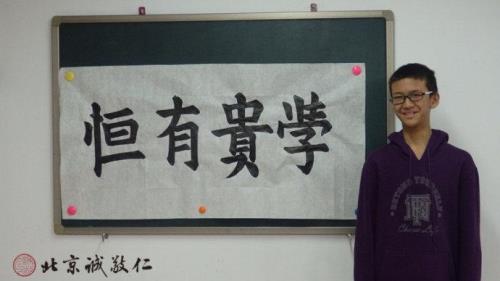 學貴有恒
北京诚敬仁